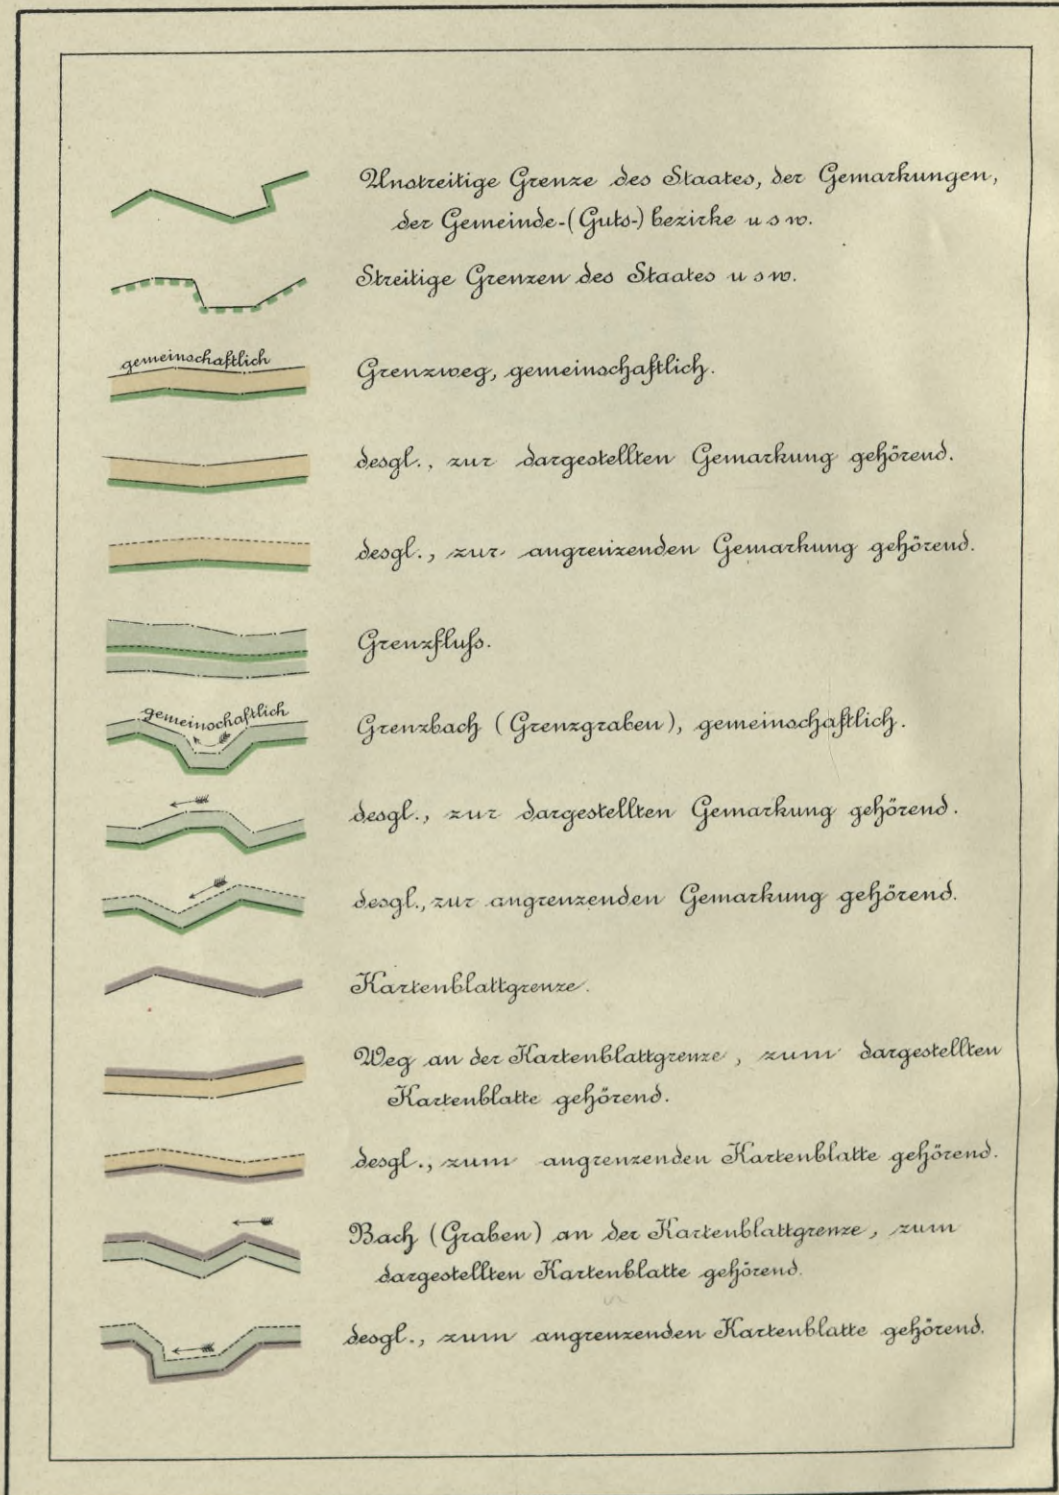 Unstreitige Grenze des Staates, der Gemarkungen,
der Gemeinde-(Guts-) bezirke u s w.
Streitige Grenzen des Staates u s w.
gemeinschaftlich
Grenzweg, gemeinschaftlich.
desgl., zur dargestellten Gemarkung gehörend.
desgl., zur angrenzenden Gemarkung gehörend.
Grenzfluſs.
gemeinschaftlich
Grenzbach (Grenzgraben), gemeinschaftlich.
desgl., zur dargestellten Gemarkung gehörend.
desgl., zur angrenzenden Gemarkung gehörend.
Kartenblattgrenze.
Weg an der Kartenblattgrenze, zum dargestellten
Kartenblatte gehörend.
desgl., zum angrenzenden Kartenblatte gehörend.
Bach (Graben) an der Kartenblattgrenze, zum
dargestellten Kartenblatte gehörend.
desgl., zum angrenzenden Kartenblatte gehörend.